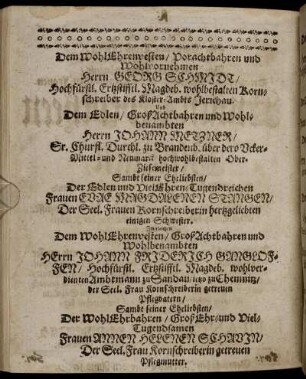 Dem WohlEhrenvesten/ Vorachtbahren und
Wohlvornehmen
Herrn GEORG SCHMJDT/
Hochfürstl. Ertzstifftl. Magdeb. wohlbestalten Korn-
schreiber des Kloster-Ambts Jerichau.
Und
Dem Edlen/ GroßAchtbahren und Wohl-
benambten
Herrn JOHANN METZNER/
Sr. Churfl. Durchl. zu Brandenb. über dero Ucker-
Mittel- und Neumarck hochwohlbestalten Ober-
Ziesemeister/
Sambt seiner Eheliebsten/
Der Edlen und VielEhren-Tugendreichen
Frauen EVAE MAGDALENEN STANGEN/
Der Seel. Frauen Kornschreiberin hertzgeliebten
eintzigen Schwester.
Dem WohlEhrenvesten/ GroßAchtbahren und
Wohlbenambten
Herrn JOHANN FRJDERJCH GANGLOF-
FEN/ Hochfürstl. Ertzstifftl. Magdeb. wohlver-
dienten Ambtmann zu Sandau/ itzo zu Chemnitz/
der Seel. Frau Kornschreiberin getreuen
Pflegvatern/
Sambt seiner Eheliebsten/
Der WohlEhrbahren/ GroßEhr- und Viel-
Tugendsamen
Frauen ANNEN HELENEN SCHAVJN/
Der Seel. Frau Kornschreiberin getreuen
Pflegmutter.